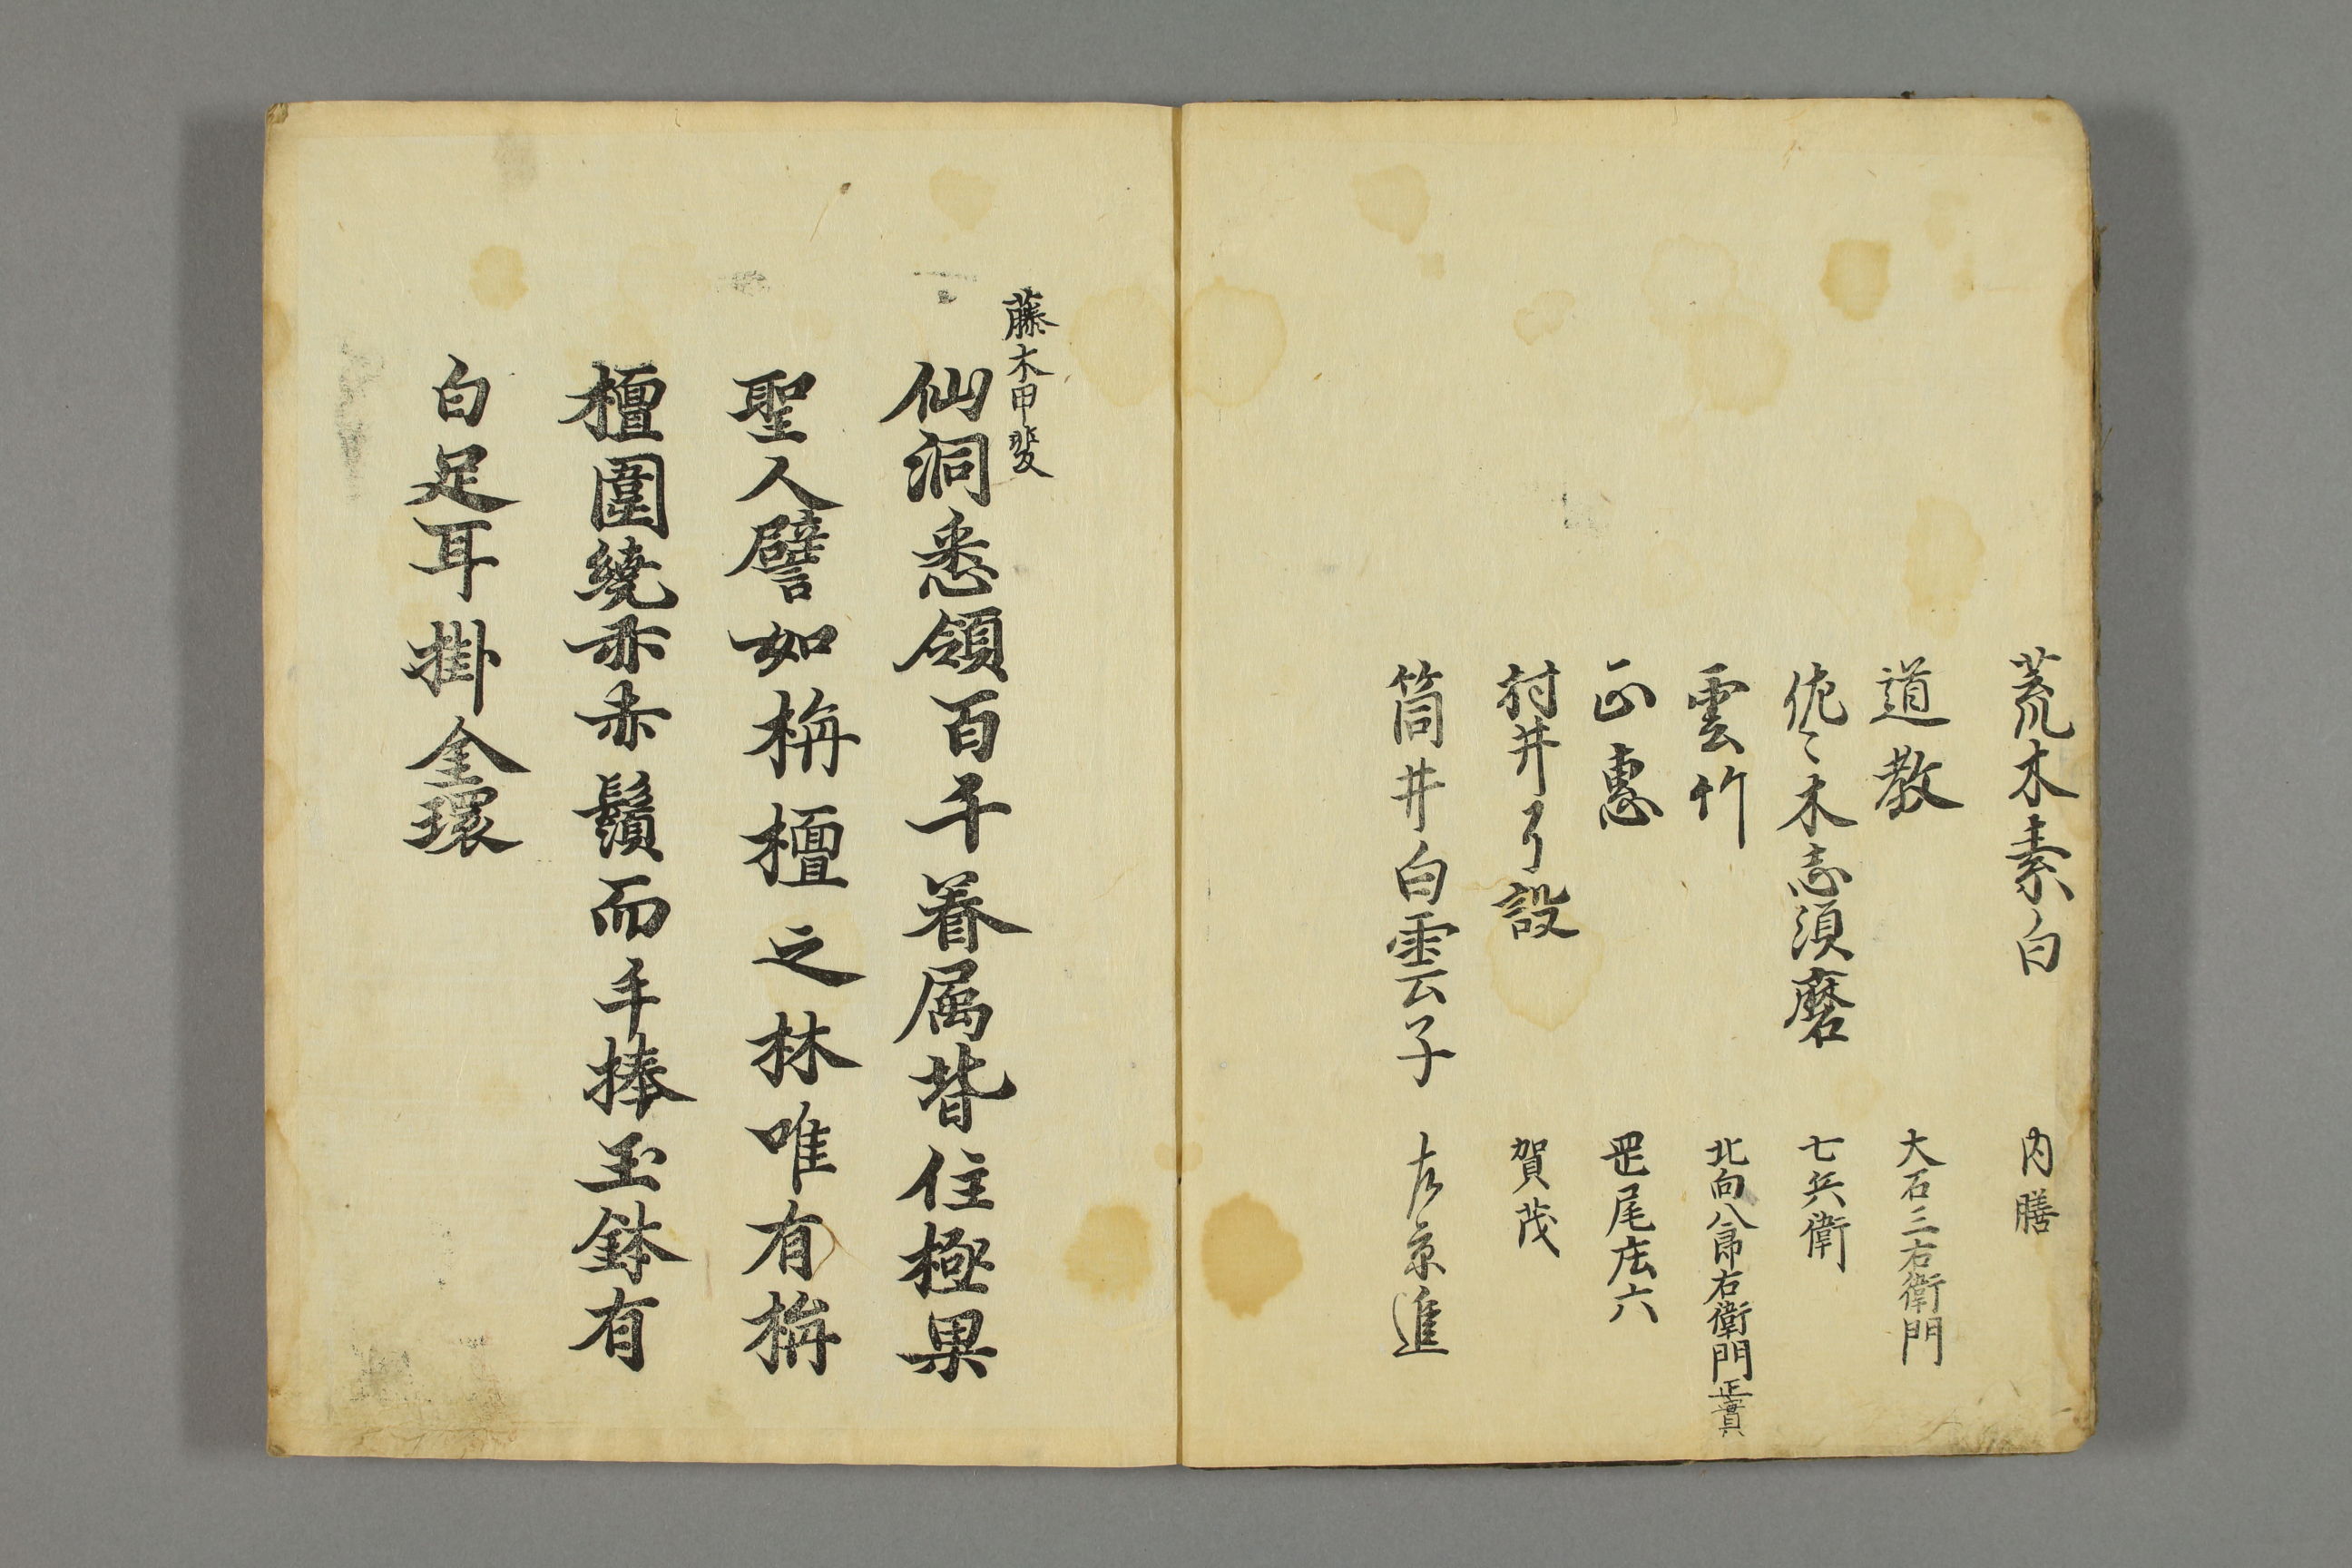 荒木素白 内膳
道教 大石三右衛門
佐々木志須磨 七兵衛
雲竹 北向八郎右衛門 正實
正惠 罡尾庄六
村井了設 賀茂
筒井白雲子 左京進
藤木甲斐
仙洞悉領百千眷属皆住極果
聖人譬如栴檀之林唯有栴
檀圍繞亦赤鬚而手捧玉鉢有
白足耳掛金環